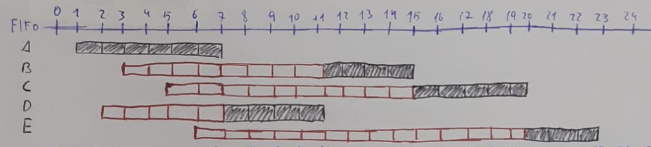 0 1 2 3 4 5 6 7 8 9 10 11 12 13 14 15 16 17 18 19 20 21 22 23 24
FIFO
A
B
C
D
E